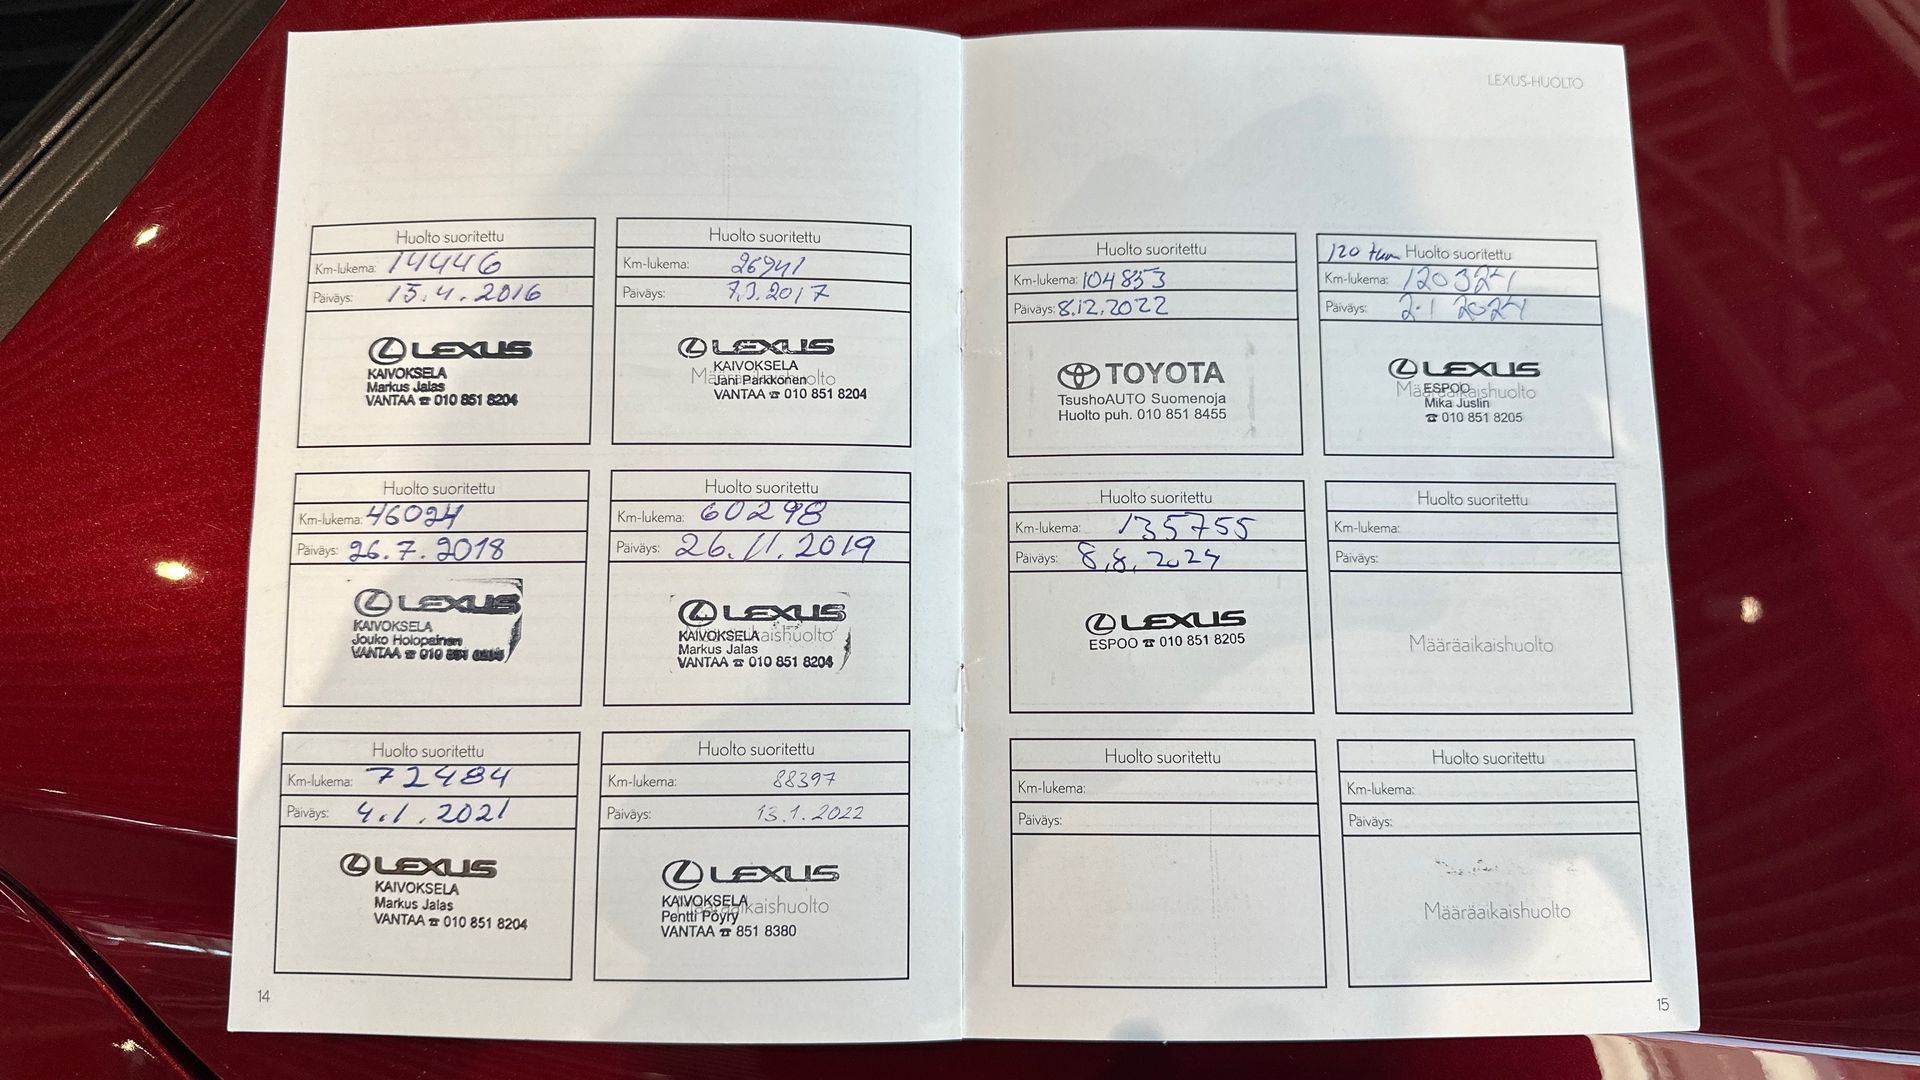 LEXUS-HUOLTO
Huolto suoritettu
Km-lukema: 14446
Päiväys: 15.4.2016
LEXUS
KAIVOKSELA
Markus Jalas
VANTAA ☎ 010 851 8204
Huolto suoritettu
Km-lukema: 26941
Päiväys: 7.3.2017
LEXUS
KAIVOKSELA
Määräaikaishuolto
Jani Parkkonen
VANTAA ☎ 010 851 8204
Huolto suoritettu
Km-lukema: 46024
Päiväys: 26.7.2018
LEXUS
KAIVOKSELA
Jouko Holopainen
VANTAA ☎ 010 851 8204
Huolto suoritettu
Km-lukema: 60298
Päiväys: 26.11.2019
LEXUS
KAIVOKSELA
Määräaikaishuolto
Markus Jalas
VANTAA ☎ 010 851 8204
Huolto suoritettu
Km-lukema: 72484
Päiväys: 4.1.2021
LEXUS
KAIVOKSELA
Markus Jalas
VANTAA ☎ 010 851 8204
Huolto suoritettu
Km-lukema: 88397
Päiväys: 13.1.2022
LEXUS
KAIVOKSELA
Määräaikaishuolto
Pentti Pöyry
VANTAA ☎ 851 8380
14
Huolto suoritettu
Km-lukema: 104853
Päiväys: 8.12.2022
TOYOTA
TsushoAUTO Suomenoja
Huolto puh. 010 851 8455
120 tkm Huolto suoritettu
Km-lukema: 120321
Päiväys: 2.1 2024
LEXUS
ESPOO
Määräaikaishuolto
Mika Juslin
☎ 010 851 8205
Huolto suoritettu
Km-lukema: 135755
Päiväys: 8.8.2024
LEXUS
ESPOO ☎ 010 851 8205
Huolto suoritettu
Km-lukema:
Päiväys:
Määräaikaishuolto
Huolto suoritettu
Km-lukema:
Päiväys:
Huolto suoritettu
Km-lukema:
Päiväys:
Määräaikaishuolto
15